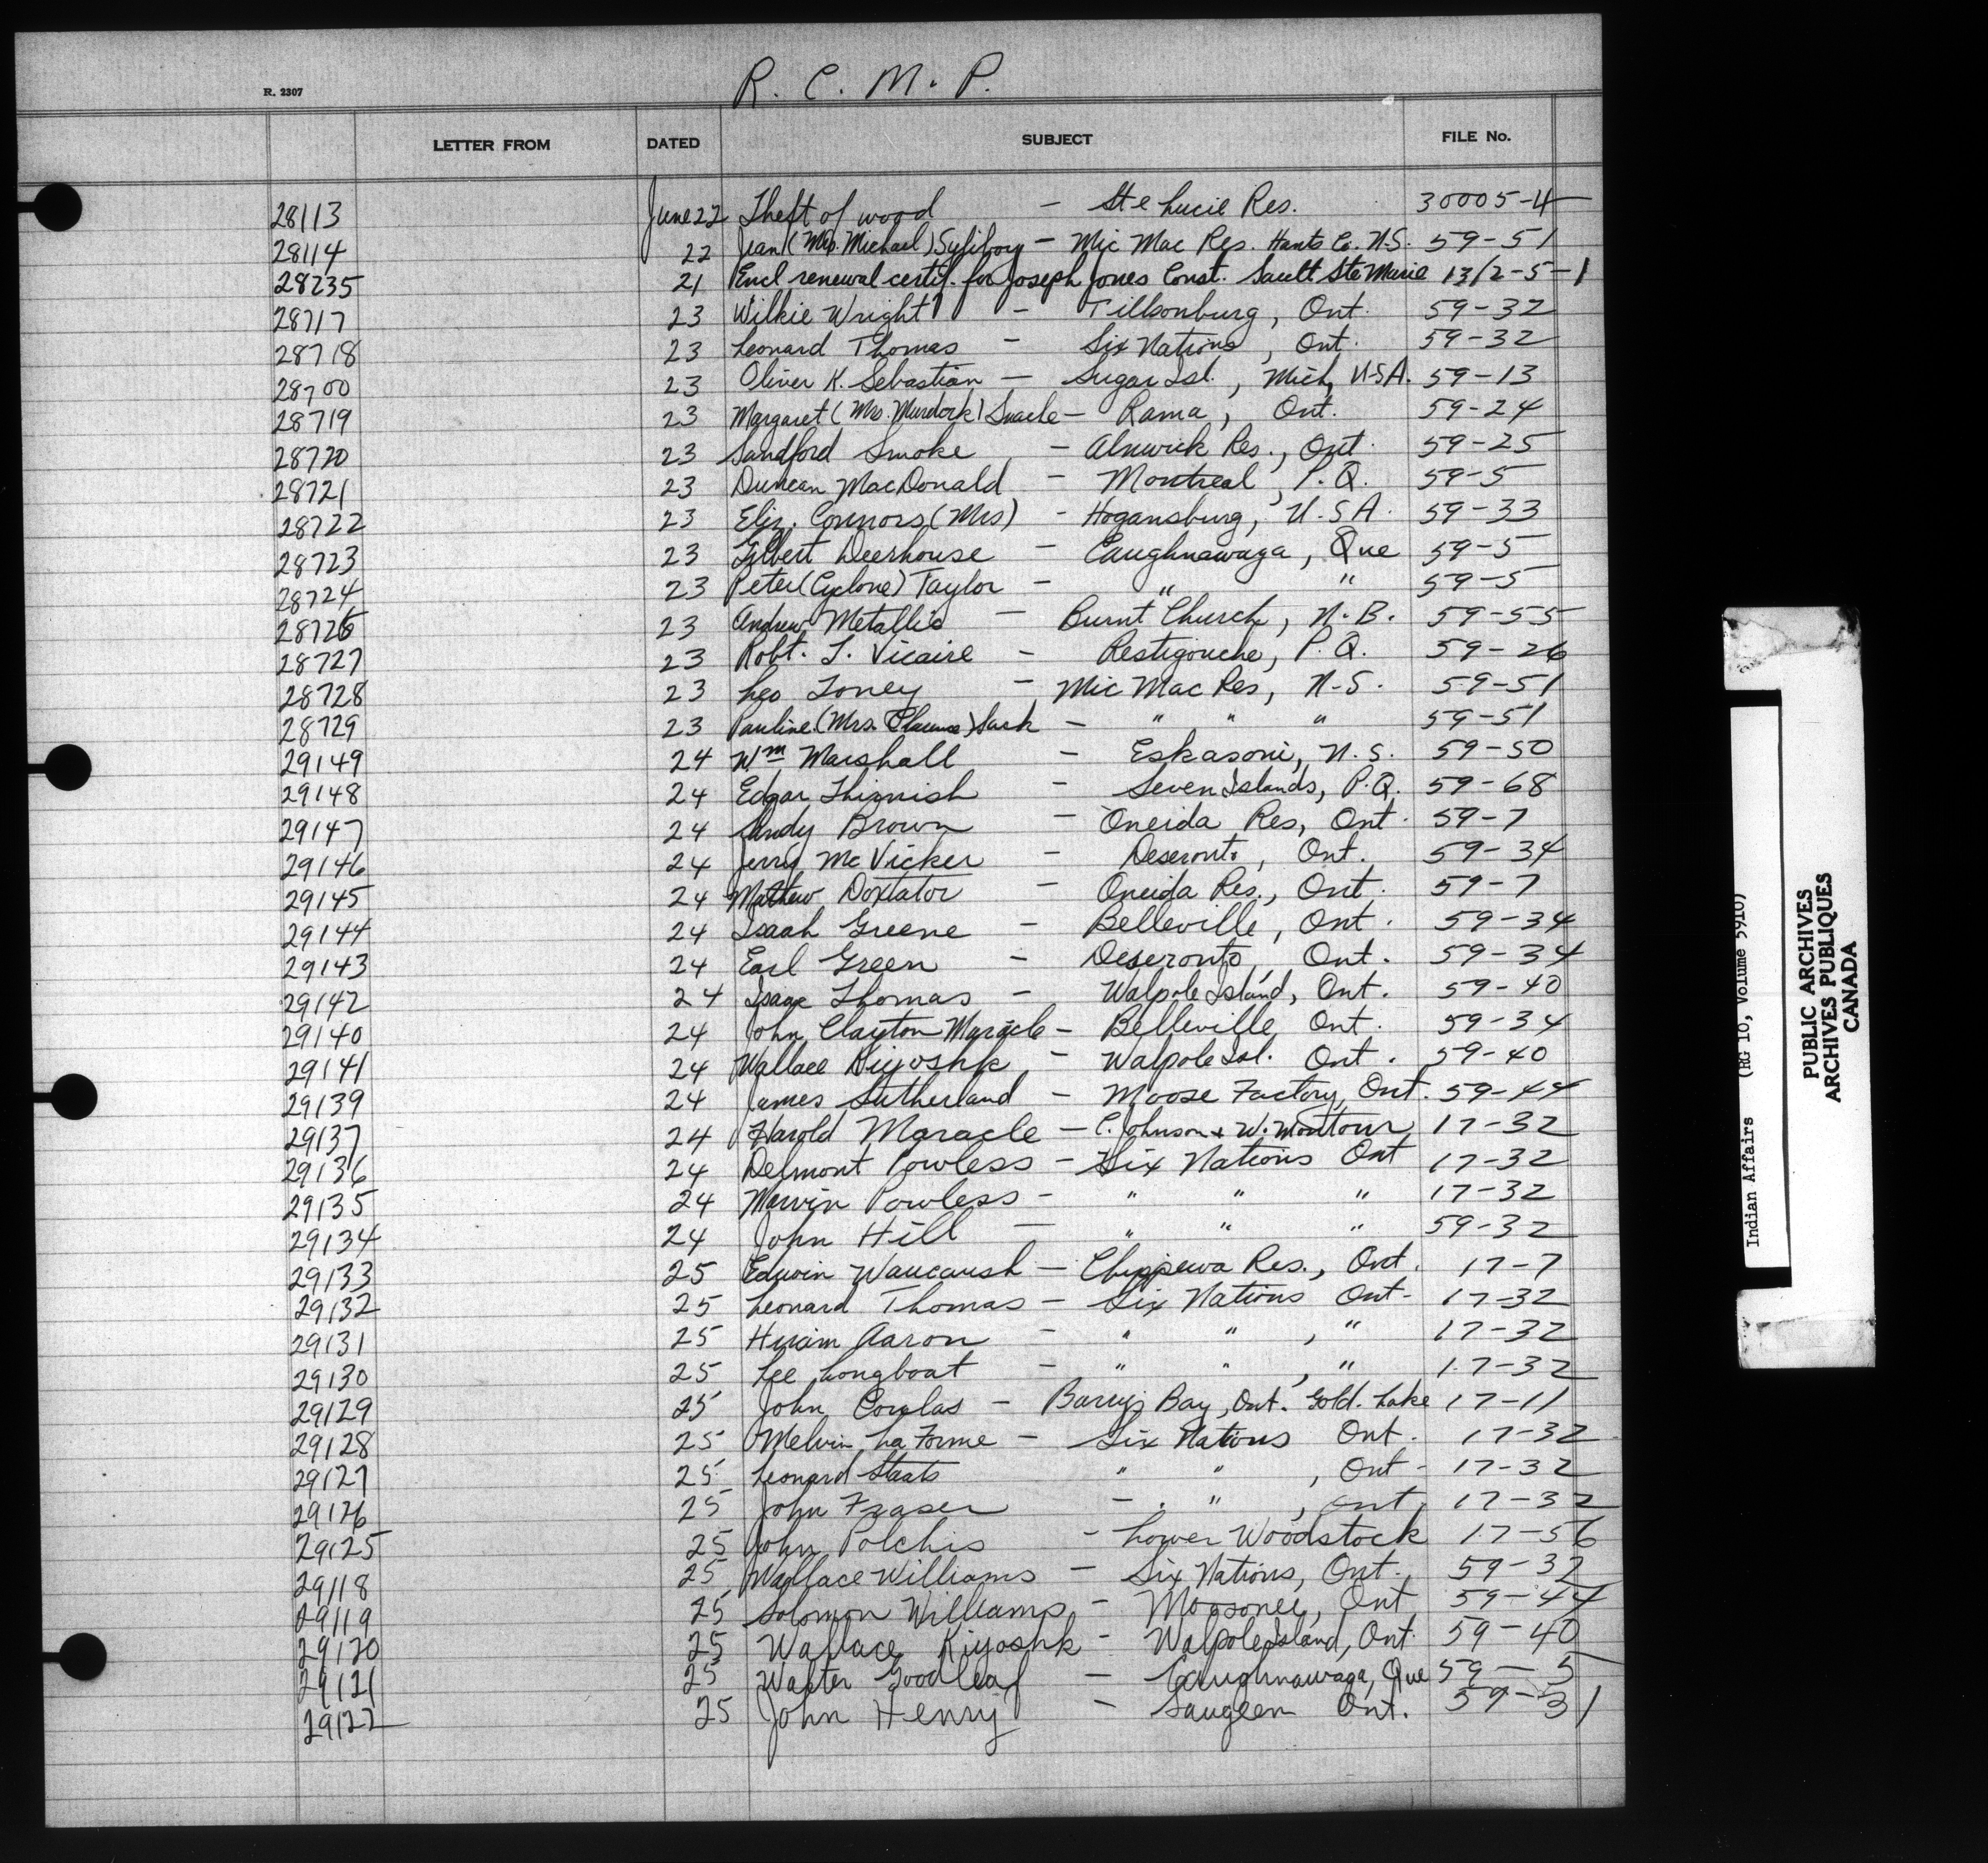 R. C. M. P.
R. 2307
LETTER FROM DATED SUBJECT FILE No.
28113 June 22 Theft of wood - Ste Lucie Res. 30005-4
28114 22 Jean (Mrs. Michael) Syliboy - Mic Mac Res. Hants Co. N.S. 59-51
28235 21 Encl renewal certif. for Joseph Jones Const. Sault Ste Marie 13/2-5-1
28717 23 Wilkie Wright - Tillsonburg, Ont. 59-32
28718 23 Leonard Thomas - Six Nations, Ont. 59-32
28700 23 Oliver K. Sebastian - Sugar Isl., Mich, U.S.A. 59-13
28719 23 Margaret (Mrs. Murdock) Snache - Rama, Ont. 59-24
28720 23 Sandford Smoke - Alnwick Res., Ont. 59-25
28721 23 Duncan MacDonald - Montreal, P.Q. 59-5
28722 23 Eliz. Connors (Mrs) - Hogansburg, U.S.A. 59-33
28723 23 Gilbert Deerhouse - Caughnawaga, Que 59-5
28724 23 Peter (Cyclone) Taylor - " " 59-5
28726 23 Andrew Metallic - Burnt Church, N.B. 59-55
28727 23 Robt. J. Vicaire - Restigouche, P.Q. 59-26
28728 23 Leo Toney - Mic Mac Res, N.S. 59-51
28729 23 Pauline (Mrs. Clarence) Sack - " " " 59-51
29149 24 Wm Marshall - Eskasoni, N.S. 59-50
29148 24 Edgar - Seven Islands, P.Q. 59-68
29147 24 Sandy Brown - Oneida Res, Ont. 59-7
29146 24 Jerry McVicker - Deseronto, Ont. 59-34
29145 24 Mathew Doxtator - Oneida Res., Ont. 59-7
29144 24 Isaah Greene - Belleville, Ont. 59-34
29143 24 Earl Green - Deseronto, Ont. 59-34
29142 24 Isaac Thomas - Walpole Island, Ont. 59-40
29140 24 John Clayton Maracle - Belleville, Ont. 59-34
29141 24 Wallace Kiyoshk - Walpole Isl. Ont. 59-40
29139 24 James Sutherland - Moose Factory, Ont. 59-44
29137 24 Harold Maracle - C. Johnson & W. Montour 17-32
29136 24 Delmont Powless - Six Nations Ont 17-32
29135 24 Marvin Powless - " " " 17-32
29134 24 John Hill - " " " 59-32
29133 25 Edwin Waucaush - Chippewa Res., Ont. 17-7
29132 25 Leonard Thomas - Six Nations Ont. 17-32
29131 25 Hiram Aaron - " " , " 17-32
29130 25 Lee Longboat - " " , " 17-32
29129 25 John - Barry's Bay, Ont. Gold. Lake 17-11
29128 25 Melvin LaForme - Six Nations Ont. 17-32
29127 25 Leonard Staats " " , Ont - 17-32
29126 25 John Fraser - " " , Ont 17-32
29125 25 John Polchis - Lower Woodstock 17-56
29118 25 Wallace Williams - Six Nations, Ont. 59-32
29119 25 Solomon Williams - Moosonee, Ont 59-44
29120 25 Wallace Kiyoshk - Walpole Island, Ont. 59-40
29121 25 Walter Goodleaf - Caughnawaga, Que 59-5
29122 25 John Henry - Saugeen Ont. 59-31
Indian Affairs (RG 10, Volume 5910)
PUBLIC ARCHIVES
ARCHIVES PUBLIQUES
CANADA